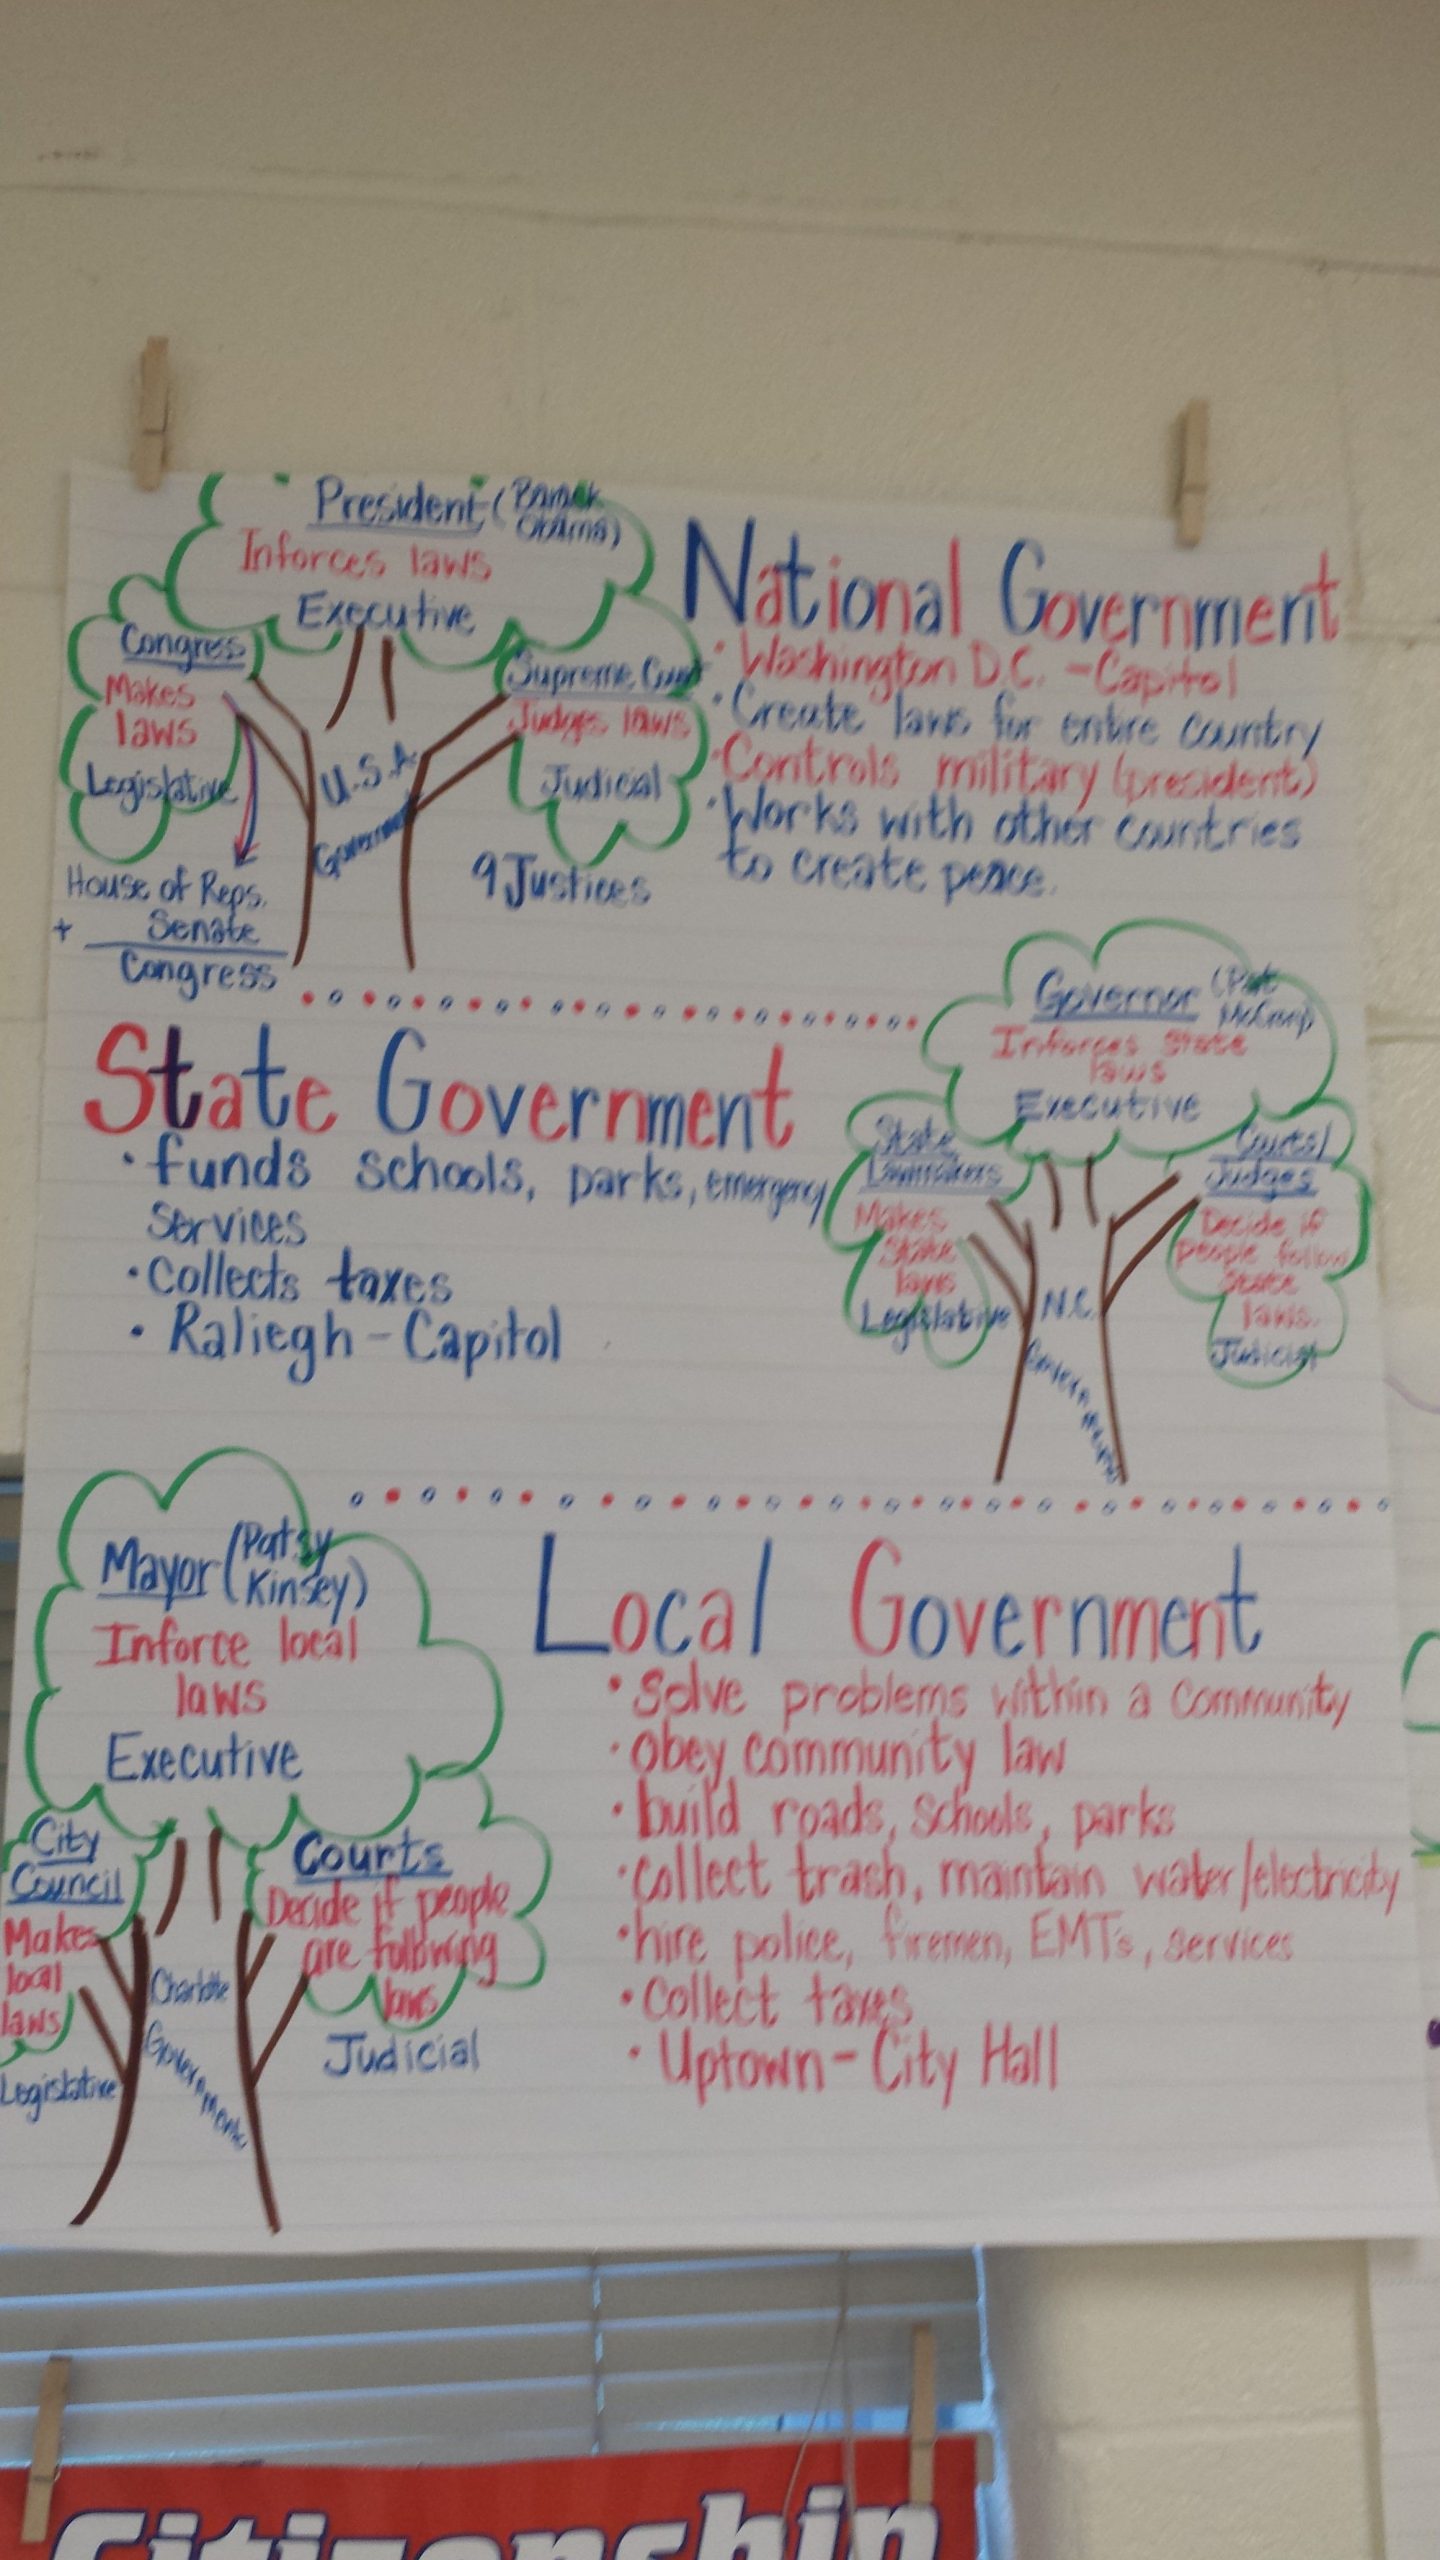 President (Barack
Obama)
Inforces laws
Executive
Congress
Makes
laws
Legislative
Supreme Court
Judges laws
Judicial
U.S.A.
Government
9 Justices
House of Reps.
+ Senate
Congress
National Government
• Washington D.C. - Capitol
• Create laws for entire country
• Controls military (president)
• Works with other countries
to create peace.
State Government
• funds schools, parks, emergency
services
• Collects taxes
• Raliegh - Capitol
Governor (Pat
McCrory)
Inforces State
laws
Executive
State
Lawmakers
Makes
State
laws
Legislative
Courts/
Judges
Decide if
people follow
State
laws.
Judicial
N.C.
Government
Mayor (Patsy
Kinsey)
Inforce local
laws
Executive
City
Council
Makes
local
laws
Legislative
Courts
Decide if people
are following
laws
Judicial
Charlotte
Government
Local Government
• Solve problems within a community
• obey community law
• build roads, schools, parks
• collect trash, maintain water/electricity
• hire police, firemen, EMTs, services
• Collect taxes
• Uptown - City Hall
Citizenship